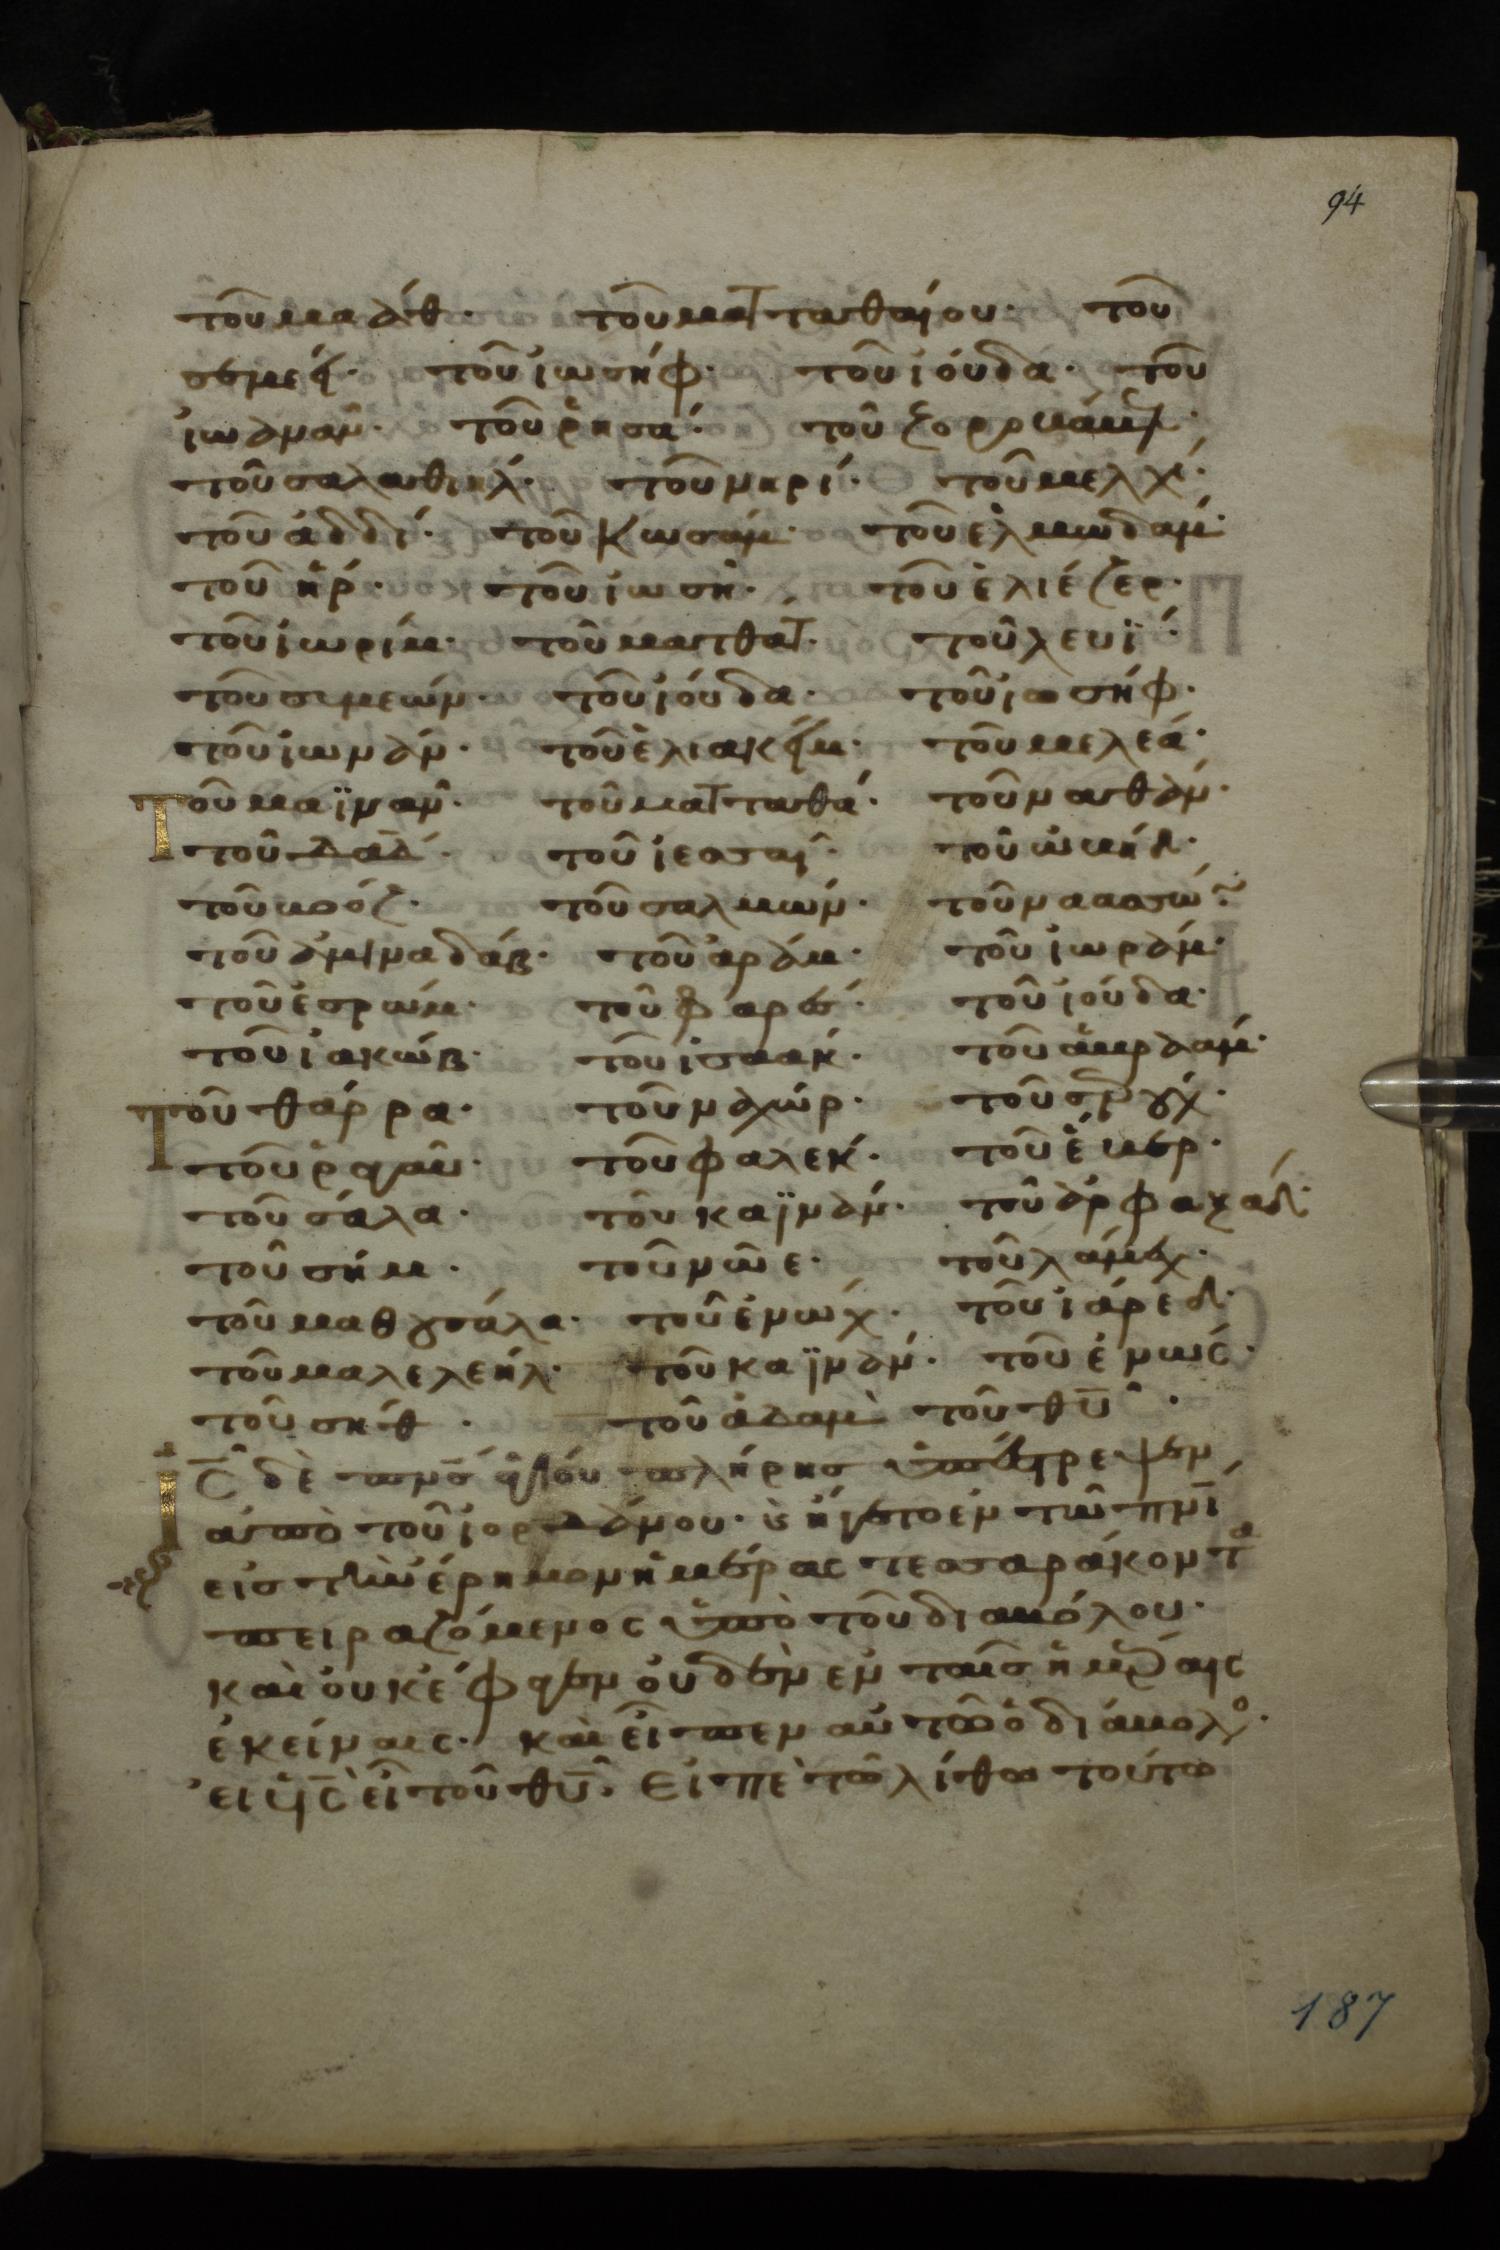 94
τοῦ μαάθ· τοῦ ματταθαίου· τοῦ
σεμεῒ· τοῦ ἰωσὴφ· τοῦ ἰούδα· τοῦ
ἰωαναῦ· τοῦ ῥησά· τοῦ ζορομβάβελ·
τοῦ σαλαθιήλ· τοῦ νηρί· τοῦ μελχί·
τοῦ ἀδδί· τοῦ κωσάμ· τοῦ ἐλμωδάμ·
τοῦ ἤρ· τοῦ ἰωσή· τοῦ ἐλιέζερ·
τοῦ ἰωρίμ· τοῦ ματθάτ· τοῦ λευΐ·
τοῦ συμεών· τοῦ ἰούδα· τοῦ ἰωσήφ·
τοῦ ἰωνάν· τοῦ ἐλιακείμ· τοῦ μελεά·
τοῦ μαϊναῦ· τοῦ ματταθά· τοῦ ναθάν·
τοῦ δαδ· τοῦ ἰεσσαί· τοῦ ὠβήδ·
τοῦ βοόζ· τοῦ σαλμών· τοῦ ναασών·
τοῦ ἀμιναδάβ· τοῦ ἀράμ· τοῦ ἰωράμ·
τοῦ ἐσρώμ· τοῦ φαρές· τοῦ ἰούδα·
τοῦ ἰακώβ· τοῦ ἰσαάκ· τοῦ ἀβραάμ·
τοῦ θάρρα· τοῦ ναχώρ· τοῦ σερούχ·
τοῦ ῥαγαῦ· τοῦ φαλέκ· τοῦ ἔβερ·
τοῦ σάλα· τοῦ καϊνάν· τοῦ ἀρφαξάδ·
τοῦ σήμ· τοῦ νῶε· τοῦ λάμεχ·
τοῦ μαθουσάλα· τοῦ ἐνώχ· τοῦ ἰάρεδ·
τοῦ μαλελεήλ· τοῦ καϊνάν· τοῦ ἐνώς·
τοῦ σήθ· τοῦ ἀδὰμ τοῦ θυ·
Ις δὲ πνς ἁγίου πλήρης ὑπέστρεψεν
ἀπὸ τοῦ ἰορδάνου· καὶ ἤγετο ἐν τῶ πνι
εἰς τὴν ἔρημον ἡμέρας τεσσαράκοντα
πειραζόμενος ὑπὸ τοῦ διαβόλου·
καὶ οὐκ ἔφαγεν οὐδὲν ἐν ταῖς ἡμέραις
ἐκείναις· καὶ εἶπεν αὐτῶ ὁ διάβολος·
εἰ υς εἶ τοῦ θυ· εἰπὲ τῶ λίθω τούτω
187